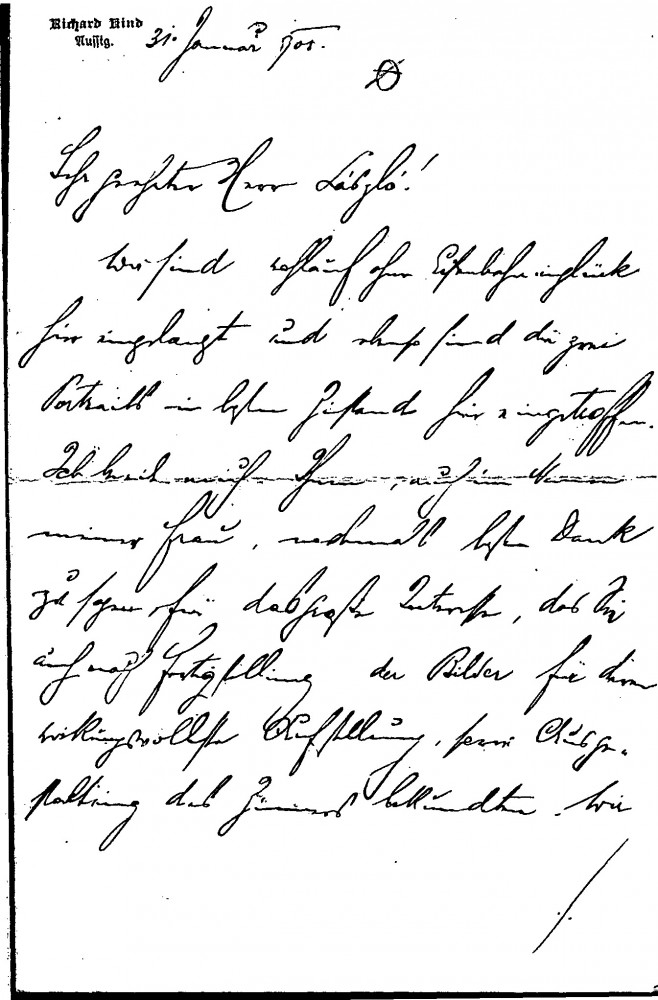 Richard Kind
Aussig.
31. Januar 1901.
Sehr geehrter Herr László!
Wir sind wohlauf ohne Eisenbahnunglück
hier eingelangt und ebenso sind die zwei
Portraits in bestem Zustand hier eingetroffen.
Ich beeile mich Ihnen, auch im Namen
meiner Frau, nochmals besten Dank
zu sagen für das große Interesse, das Sie
auch nach Fertigstellung der Bilder für deren
wirkungsvollste Aufstellung, sowie Ausge-
staltung des Zimmers bekundeten. Wir
./.